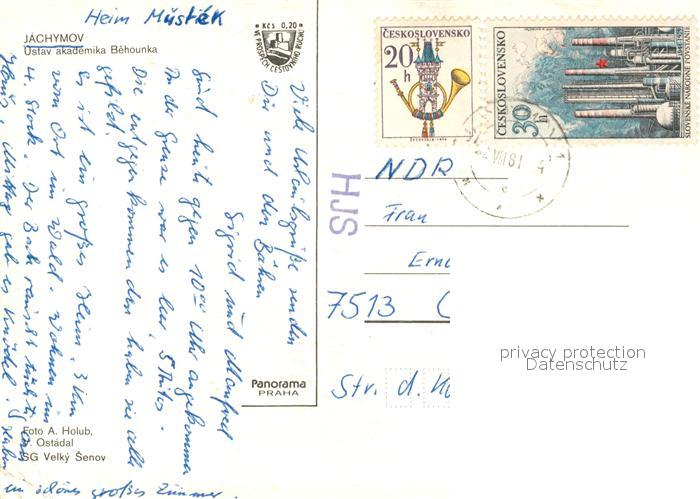 Heim Můsták
JÁCHYMOV
Ústav akademika Běhounka
Kčs 0,20
VE PROSPĚCH CESTOVNÍHO RUCHU
Viele Urlaubsgrüße senden
Dir und den
Sigrid und Manfred
Sind heut gegen 10⁰⁰ Uhr angekommen
An der Grenze war es leer, 5 Min.
Die entgegen kommenden haben sie alle
gefilzt.
Es ist ein großes Heim. 3 km
vom Ort im Wald. Wohnen im
4. Stock. Der Bach rauscht
Mittag gab es Knödel. Haben
ein schönes großes Zimmer.
Foto A. Holub,
Ostádal
SG Velký Šenov
Panorama
PRAHA
ČESKOSLOVENSKO
20 h
ČESKOSLOVENSKO
30 h
SLOVENSKÉ NÁRODNÉ POVSTANIE
VIII 81
HJS
NDR
Frau
7513
Str. d.
privacy protection
Datenschutz